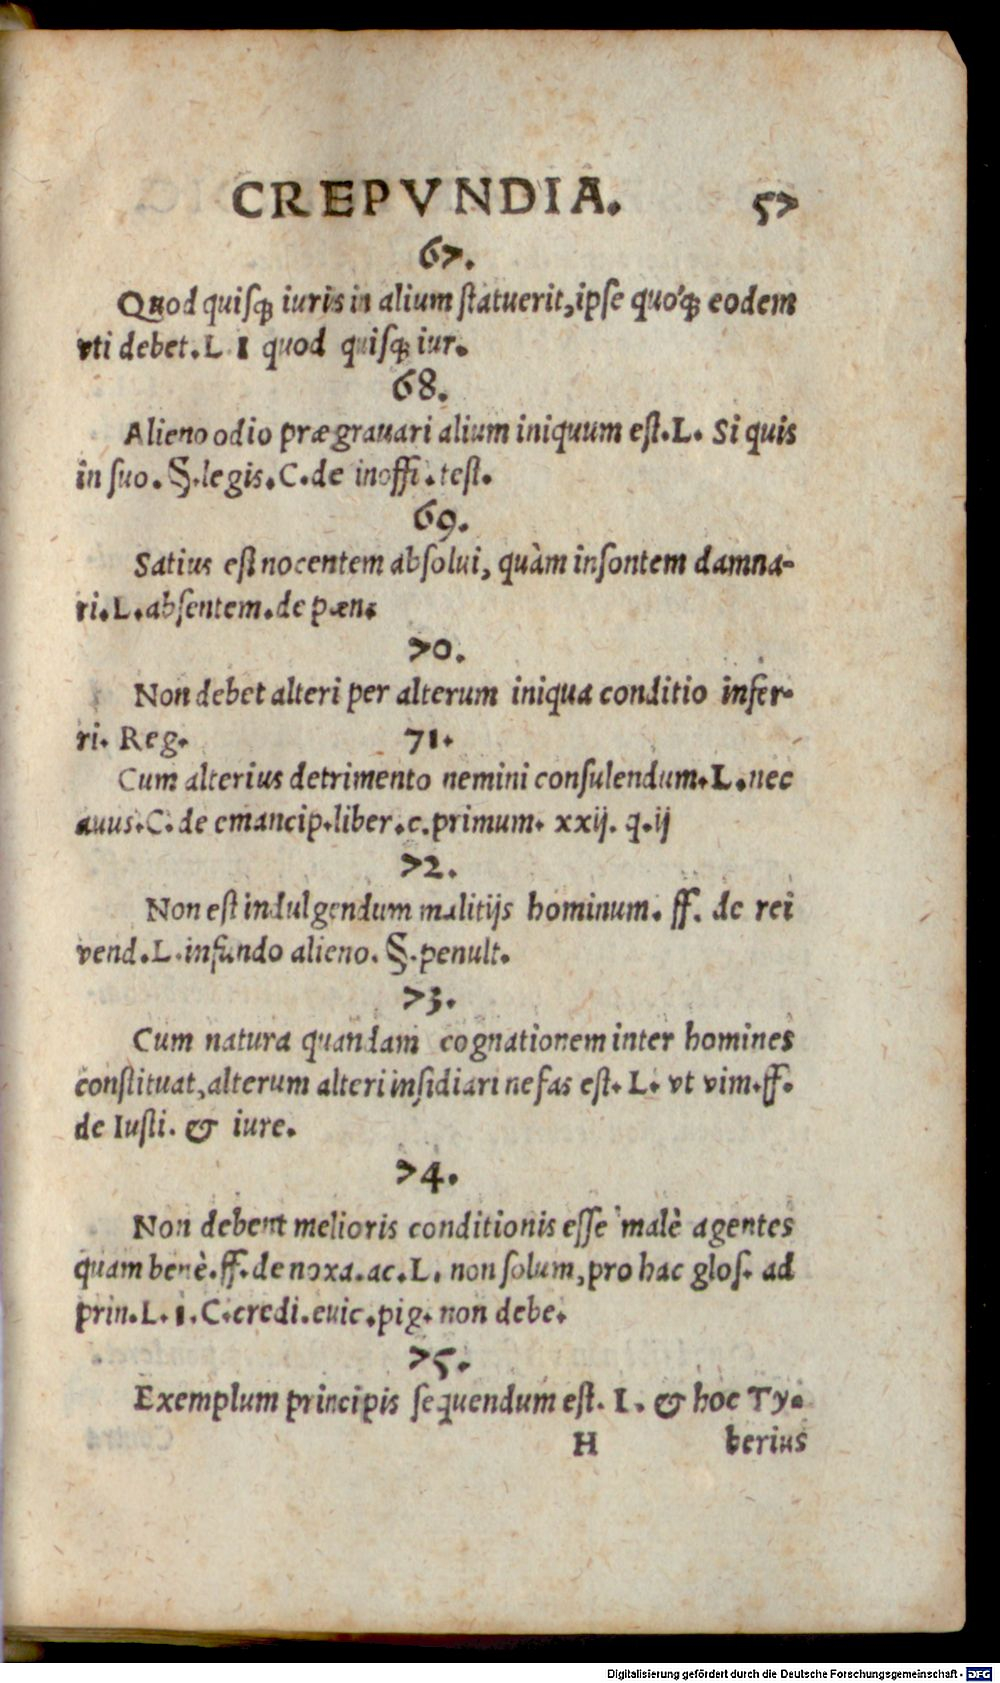 CREPVNDIA. 57
67.
Quod quisq; iuris in alium statuerit, ipse quoq; eodem
vti debet. L. 1 quod quisq; iur.
68.
Alieno odio prægrauari alium iniquum est. L. Si quis
in suo. §. legis. C. de inoffi. test.
69.
Satius est nocentem absolui, quàm insontem damna-
ri. L. absentem. de pœn.
70.
Non debet alteri per alterum iniqua conditio infer-
ri. Reg. 71.
Cum alterius detrimento nemini consulendum. L. nec
auus. C. de emancip. liber. c. primum. xxij. q. ij
72.
Non est indulgendum malitijs hominum. ff. de rei
vend. L. in fundo alieno. §. penult.
73.
Cum natura quandam cognationem inter homines
constituat, alterum alteri insidiari nefas est. L. vt vim. ff.
de Iusti. & iure.
74.
Non debent melioris conditionis esse malè agentes
quam benè. ff. de noxa. ac. L. non solum, pro hac glos. ad
prin. L. 1. C. credi. euic. pig. non debe.
75.
Exemplum principis sequendum est. L. & hoc Ty-
H berius
Digitalisierung gefördert durch die Deutsche Forschungsgemeinschaft - DFG